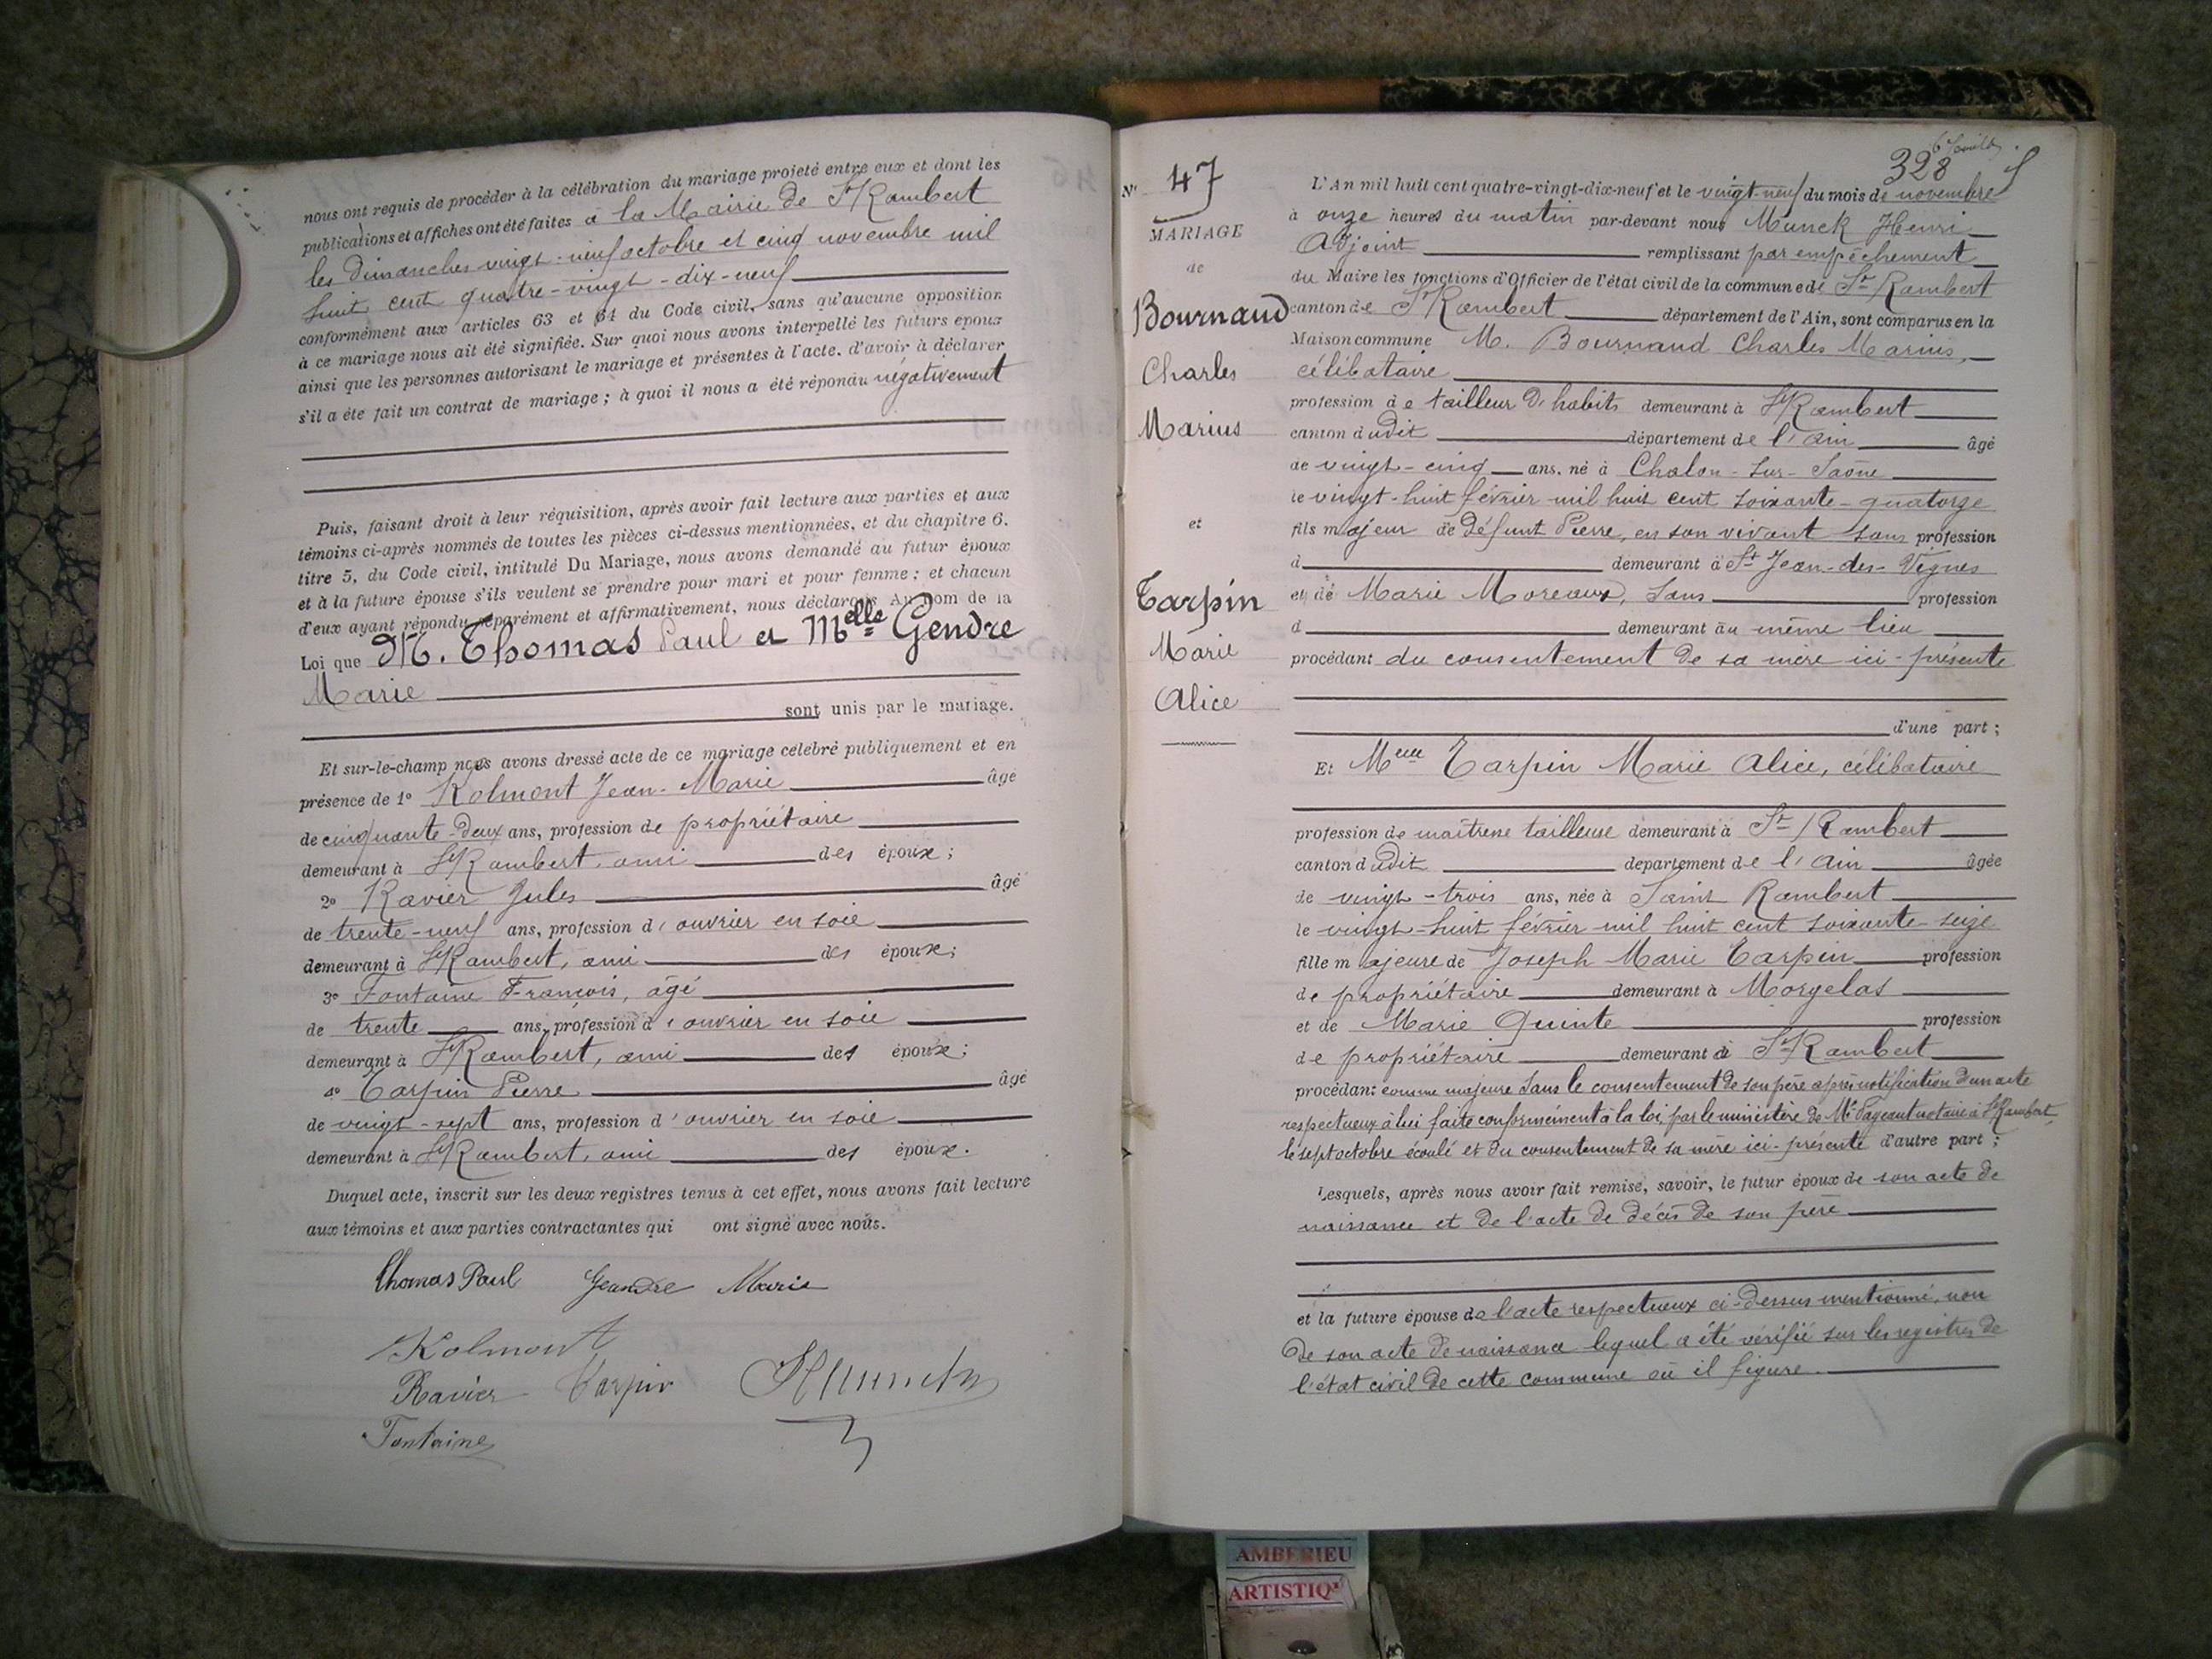 nous ont requis de procéder à la célébration du mariage projeté entre eux et dont les
publications et affiches ont été faites à la Mairie de St Rambert
les dimanches vingt-neuf octobre et cinq novembre mil
huit cent quatre-vingt-dix-neuf
conformément aux articles 63 et 64 du Code civil, sans qu'aucune opposition
à ce mariage nous ait été signifiée. Sur quoi nous avons interpellé les futurs époux
ainsi que les personnes autorisant le mariage et présentes à l'acte. d'avoir à déclarer
s'il a été fait un contrat de mariage; à quoi il nous a été répondu négativement
Puis, faisant droit à leur réquisition, après avoir fait lecture aux parties et aux
témoins ci-après nommés de toutes les pièces ci-dessus mentionnées, et du chapitre 6.
titre 5, du Code civil, intitulé Du Mariage, nous avons demandé au futur époux
et à la future épouse s'ils veulent se prendre pour mari et pour femme; et chacun
d'eux ayant répondu séparément et affirmativement, nous déclarons Au nom de la
Loi que M. Thomas Paul et Melle Gendre
Marie
sont unis par le mariage.
Et sur-le-champ nous avons dressé acte de ce mariage célébré publiquement et en
présence de 1° Kolmont Jean-Marie âgé
de cinquante-deux ans, profession de propriétaire
demeurant à St Rambert, ami des époux;
2° Ravier Jules âgé
de trente-neuf ans, profession d'ouvrier en soie
demeurant à St Rambert, ami des époux;
3° Fontaine François, âgé
de trente ans, profession d'ouvrier en soie
demeurant à St Rambert, ami des époux;
4° Tarpin Pierre âgé
de vingt-sept ans, profession d'ouvrier en soie
demeurant à St Rambert, ami des époux.
Duquel acte, inscrit sur les deux registres tenus à cet effet, nous avons fait lecture
aux témoins et aux parties contractantes qui ont signé avec nous.
Thomas Paul Geandre Marie
Kolmont
Ravier Tarpin HMunck
Fontaine
328
N° 47
MARIAGE
de
Bournaud
Charles
Marius
et
Tarpin
Marie
Alice
L'An mil huit cent quatre-vingt-dix-neuf et le vingt-neuf du mois de novembre
à onze heures du matin par-devant nous Munck Henri
Adjoint remplissant par empêchement
du Maire les fonctions d'Officier de l'état civil de la commune de St Rambert
canton de St Rambert département de l'Ain, sont comparus en la
Maison commune M. Bournaud Charles Marius,
célibataire
profession de tailleur d'habits demeurant à St Rambert
canton dudit département de l'Ain âgé
de vingt-cinq ans, né à Chalon-sur-Saône
le vingt-huit février mil huit cent soixante-quatorze
fils majeur de défunt Pierre, en son vivant sans profession
d demeurant à St Jean-des-Vignes
et de Marie Moreaux, sans profession
d demeurant au même lieu
procédant du consentement de sa mère ici-présente
d'une part;
Et Melle Tarpin Marie Alice, célibataire
profession de maîtresse tailleuse demeurant à St Rambert
canton dudit département de l'Ain âgée
de vingt-trois ans, née à Saint Rambert
le vingt-huit février mil huit cent soixante-seize
fille majeure de Joseph Marie Tarpin profession
de propriétaire demeurant à Morgelas
et de Marie Quinte profession
de propriétaire demeurant à St Rambert
procédant comme majeure sans le consentement de son père après notification d'un acte
respectueux à lui faite conformément à la loi, par le ministère de Me Pageaut notaire à St Rambert,
le sept octobre écoulé et du consentement de sa mère ici-présente d'autre part;
Lesquels, après nous avoir fait remise, savoir, le futur époux de son acte de
naissance et de l'acte de décès de son père
et la future épouse de l'acte respectueux ci-dessus mentionné, non
de son acte de naissance lequel a été vérifié sur les registres de
l'état civil de cette commune où il figure.
AMBERIEU
ARTISTIQ